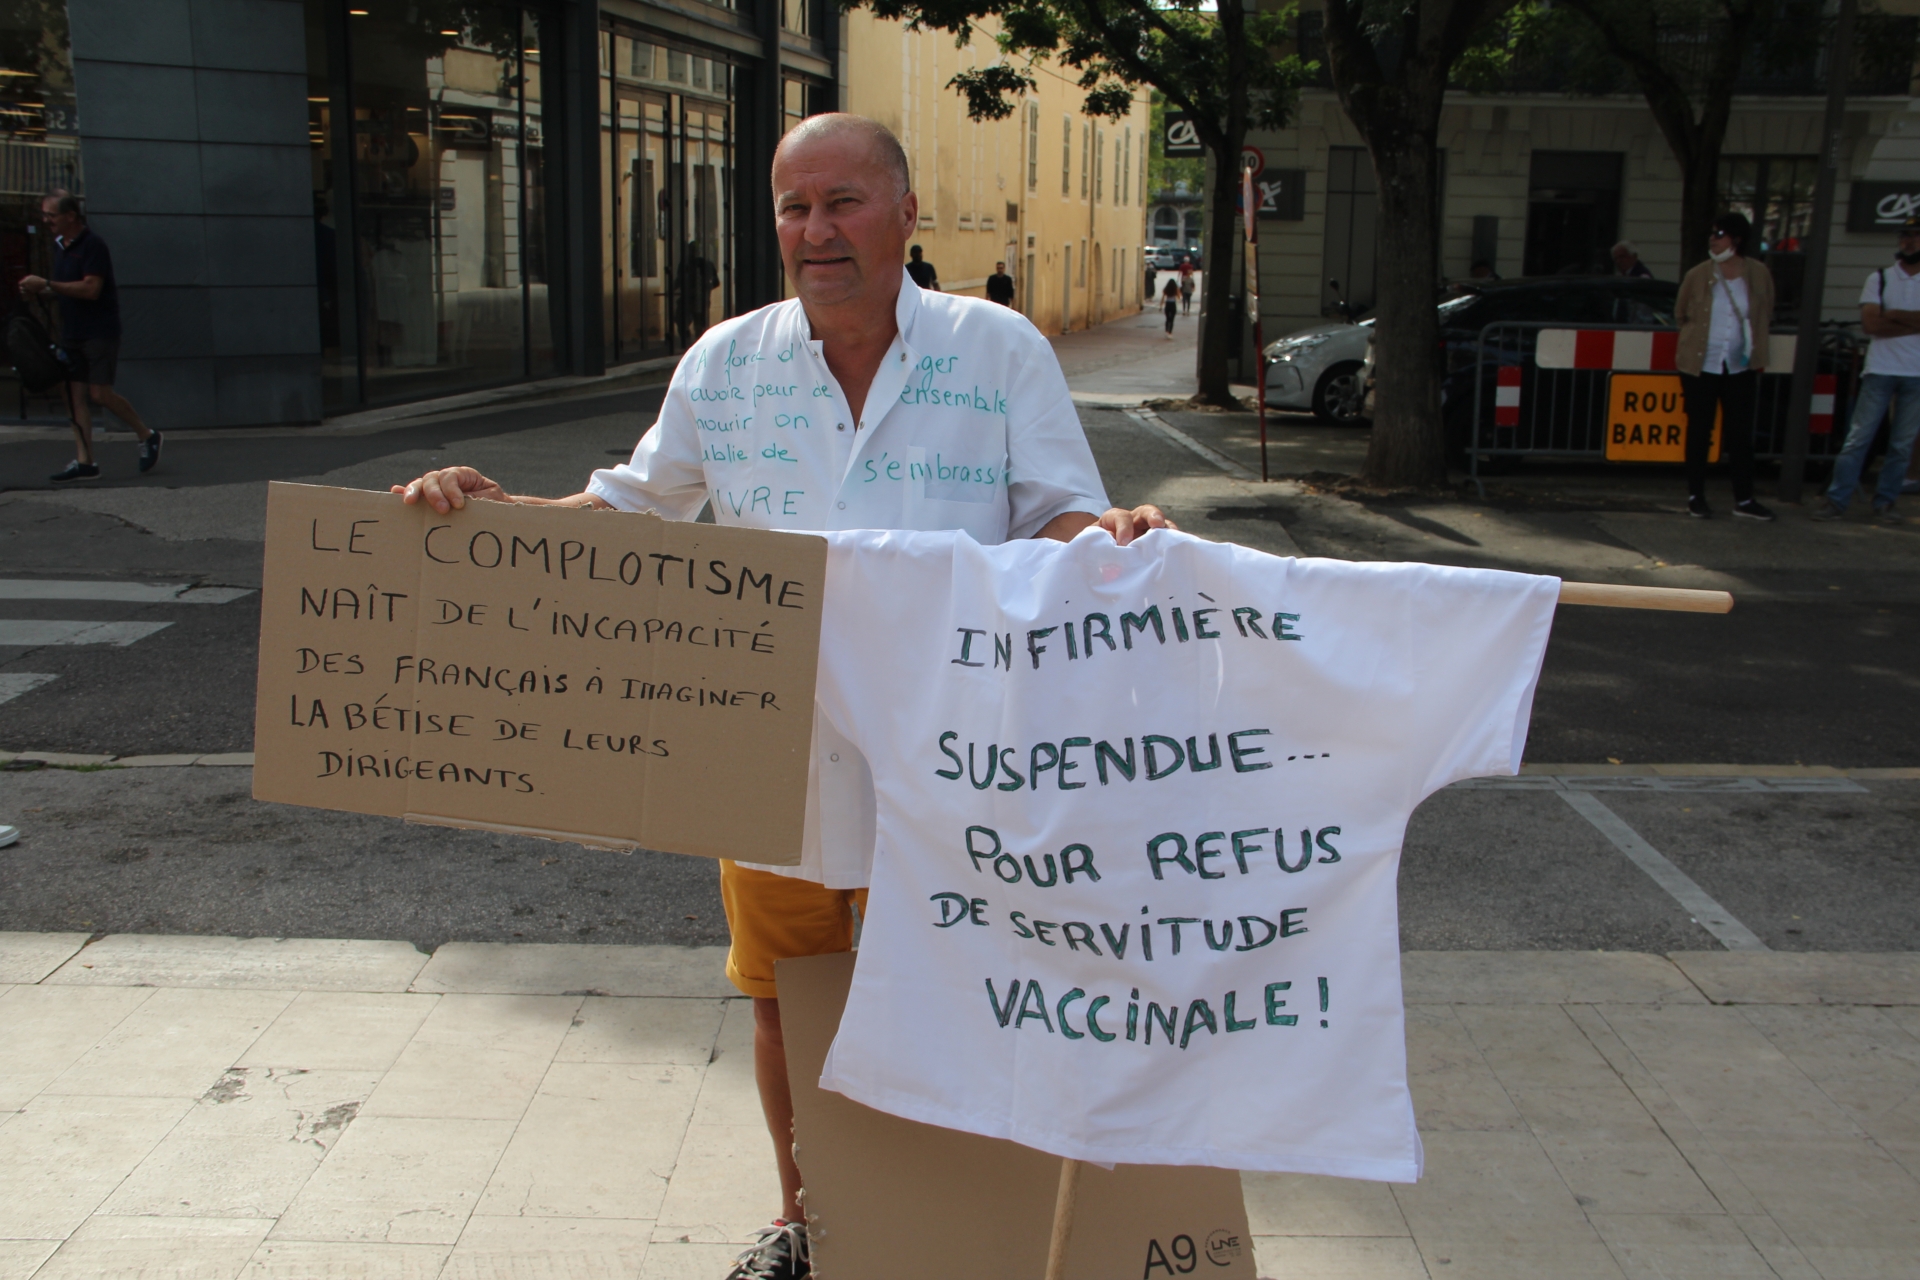 CA
10
CA
CA
ROUT
BARR E
A force d'
avoir peur de
mourir on
ublie de
IVRE
ger
ensemble
s'embrass
LE COMPLOTISME
NAÎT DE L'INCAPACITÉ
DES FRANÇAIS À IMAGINER
LA BÊTISE DE LEURS
DIRIGEANTS.
INFIRMIÈRE
SUSPENDUE...
POUR REFUS
DE SERVITUDE
VACCINALE !
A9 UNE